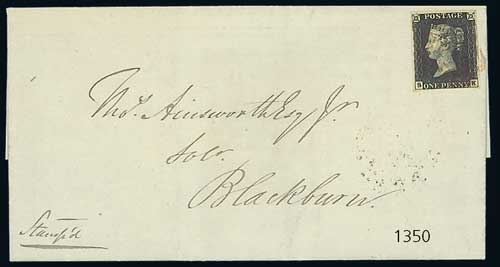 POSTAGE
ONE PENNY
Thos. Ainsworth Esq Jr.
Solr.
Blackburn.
Stamp'd
1350